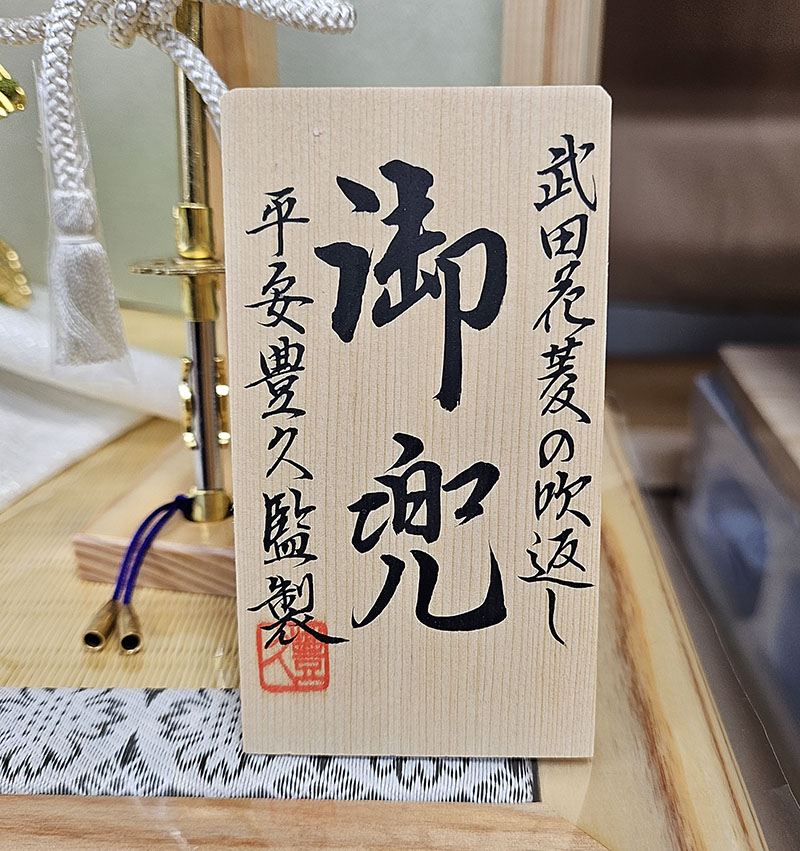 武田花菱の吹返し
御兜
平安豊久監製
豊久